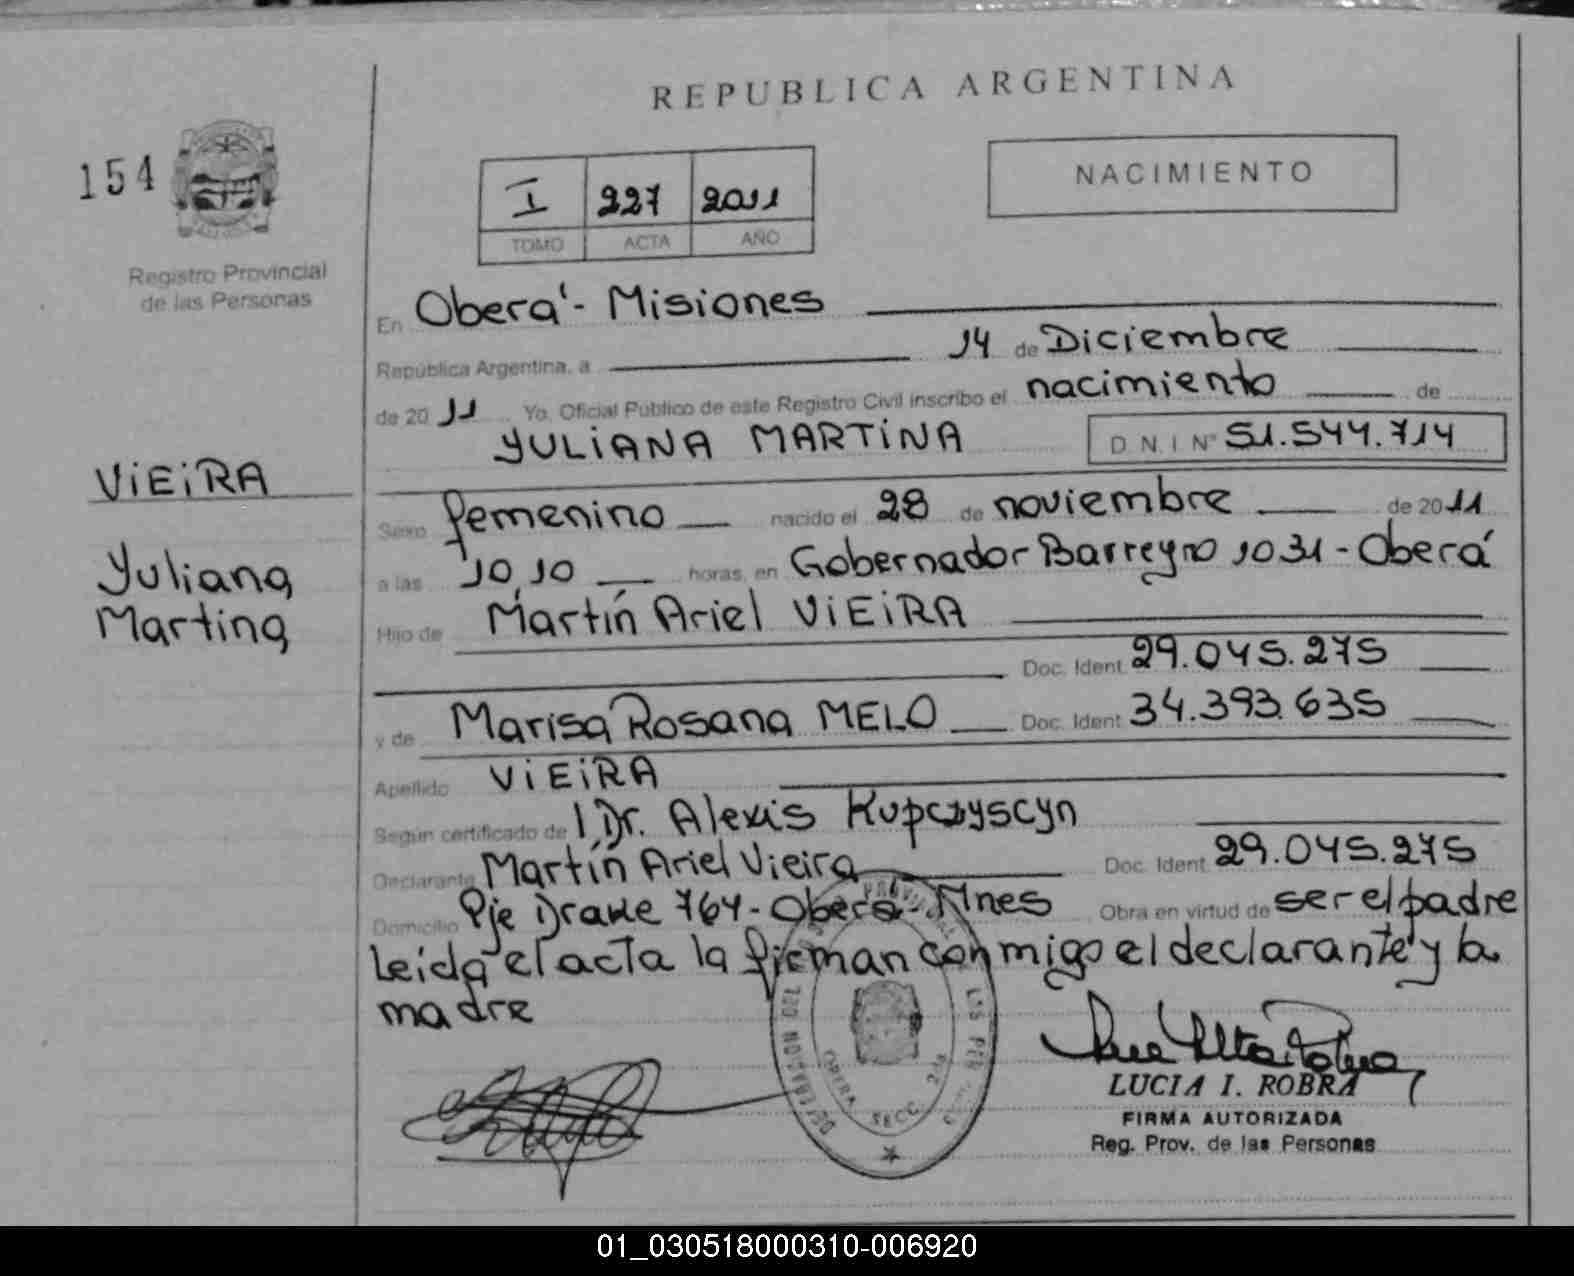 REPUBLICA ARGENTINA
154
I 227 2011
TOMO ACTA AÑO
NACIMIENTO
Registro Provincial
de las Personas
En Oberá - Misiones
República Argentina, a 14 de Diciembre
de 2011 Yo, Oficial Público de este Registro Civil inscribo el nacimiento de
YULIANA MARTINA D.N.I. Nº 51.544.714
VIEIRA
Yuliana
Martina
Sexo femenino nacido el 28 de noviembre de 2011
a las 10,10 horas, en Gobernador Barreyro 1031 - Oberá
Hijo de Martín Ariel VIEIRA
Doc. Ident. 29.045.275
y de Marisa Rosana MELO Doc. Ident. 34.393.635
Apellido VIEIRA
Según certificado de l Dr. Alexis Kupczyscyn
Declarante Martín Ariel Vieira Doc. Ident. 29.045.275
Domicilio Pje Drake 764 - Oberá - Mnes Obra en virtud de ser el padre
Leída el acta la firman conmigo el declarante y la
madre
OBERA SECC. 2da
LUCIA I. ROBRA
FIRMA AUTORIZADA
Reg. Prov. de las Personas
01_030518000310-006920